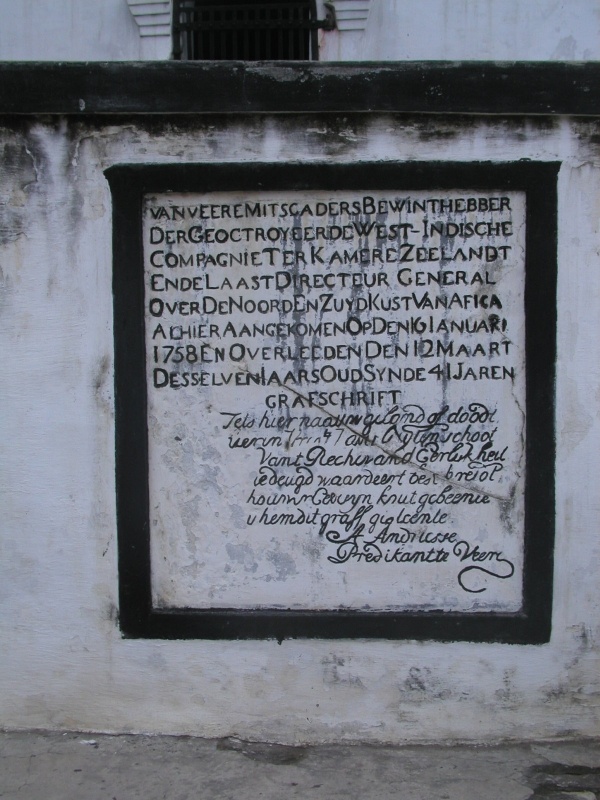 VAN VEERE MITSGADERS BEWINTHEBBER
DER GEOCTROYEERDE WEST-INDISCHE
COMPAGNIE TER KAMERE ZEELANDT
ENDE LAAST DIRECTEUR GENERAL
OVER DE NOORD EN ZUYD KUST VAN AFICA
ALHIER AANGEKOMEN OP DEN 16 IANUARI
1758 EN OVERLEEDEN DEN 12 MAART
DESSELVEN IAARS OUD SYNDE 41 JAREN
GRAFSCHRIFT
Tets hier naauw geland of doodt
school
Vant Recht and Eerlijk heil
iedeugd waardeert best
houwr Gewyn knut gebeente
u hem dit graff
A Andriesse
Predikant te Veere